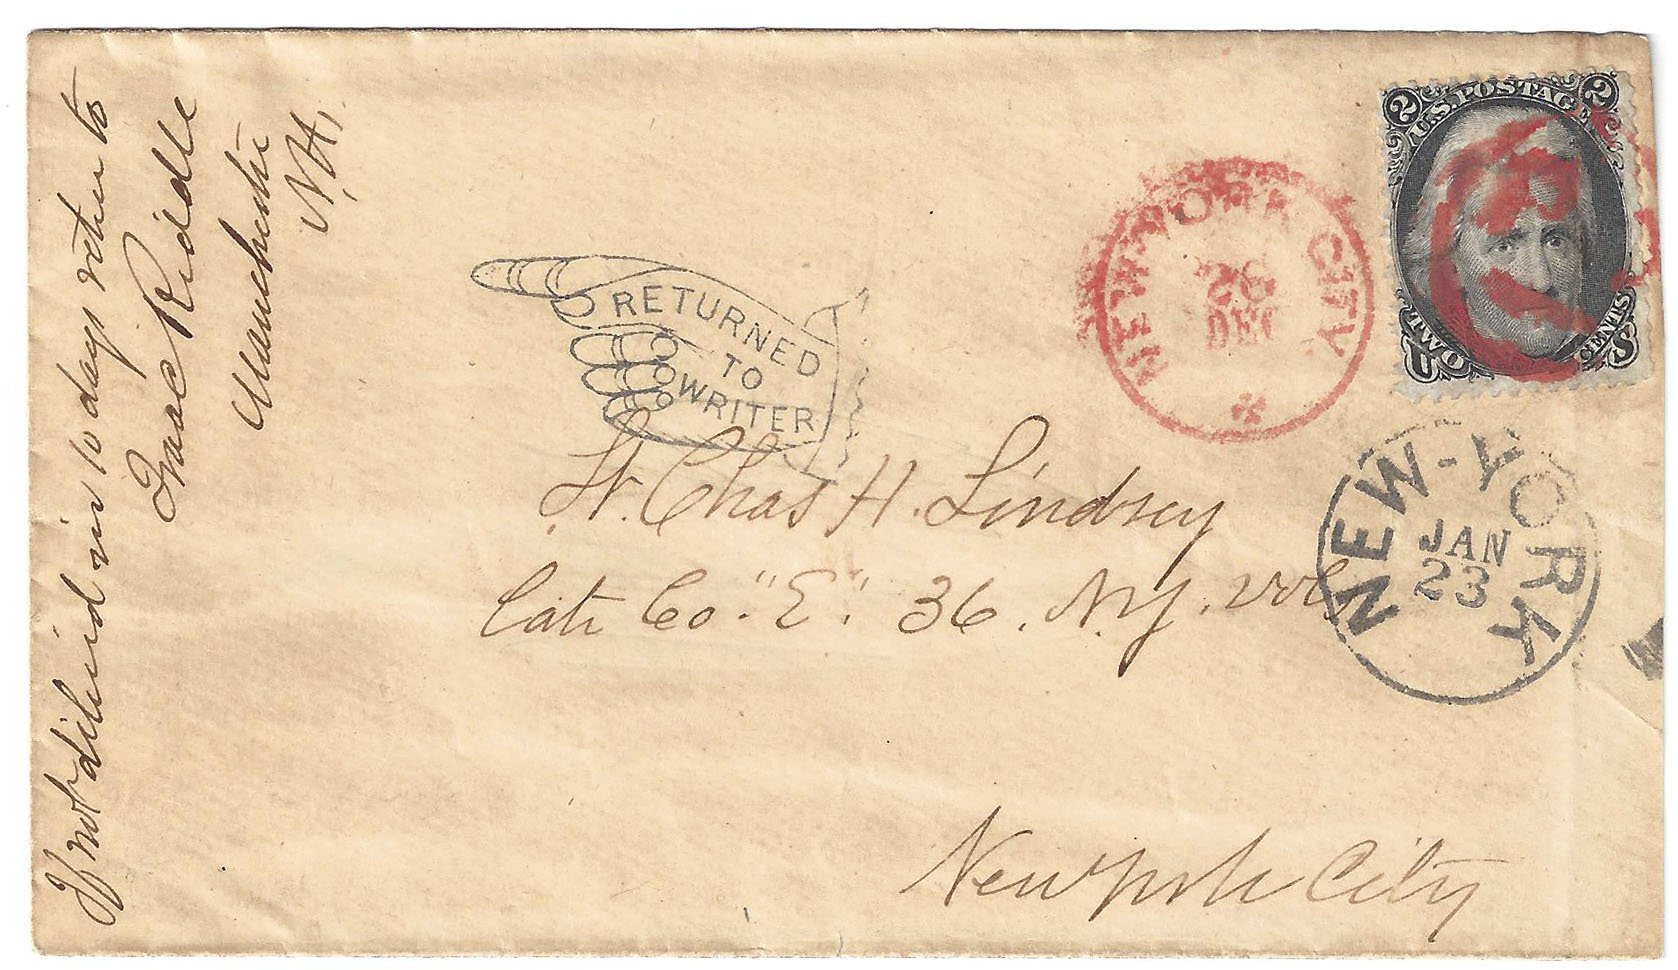 If not delivered in 10 days return to
Isaac Riddle
Manchester
N.H.
RETURNED
TO
WRITER
NEW YORK CITY
DEC
2 U.S. POSTAGE 2
TWO CENTS
U S
NEW-YORK
JAN
23
Lt. Chas H. Lindsey
Late Co. "E". 36. N.Y. Vols
New York City